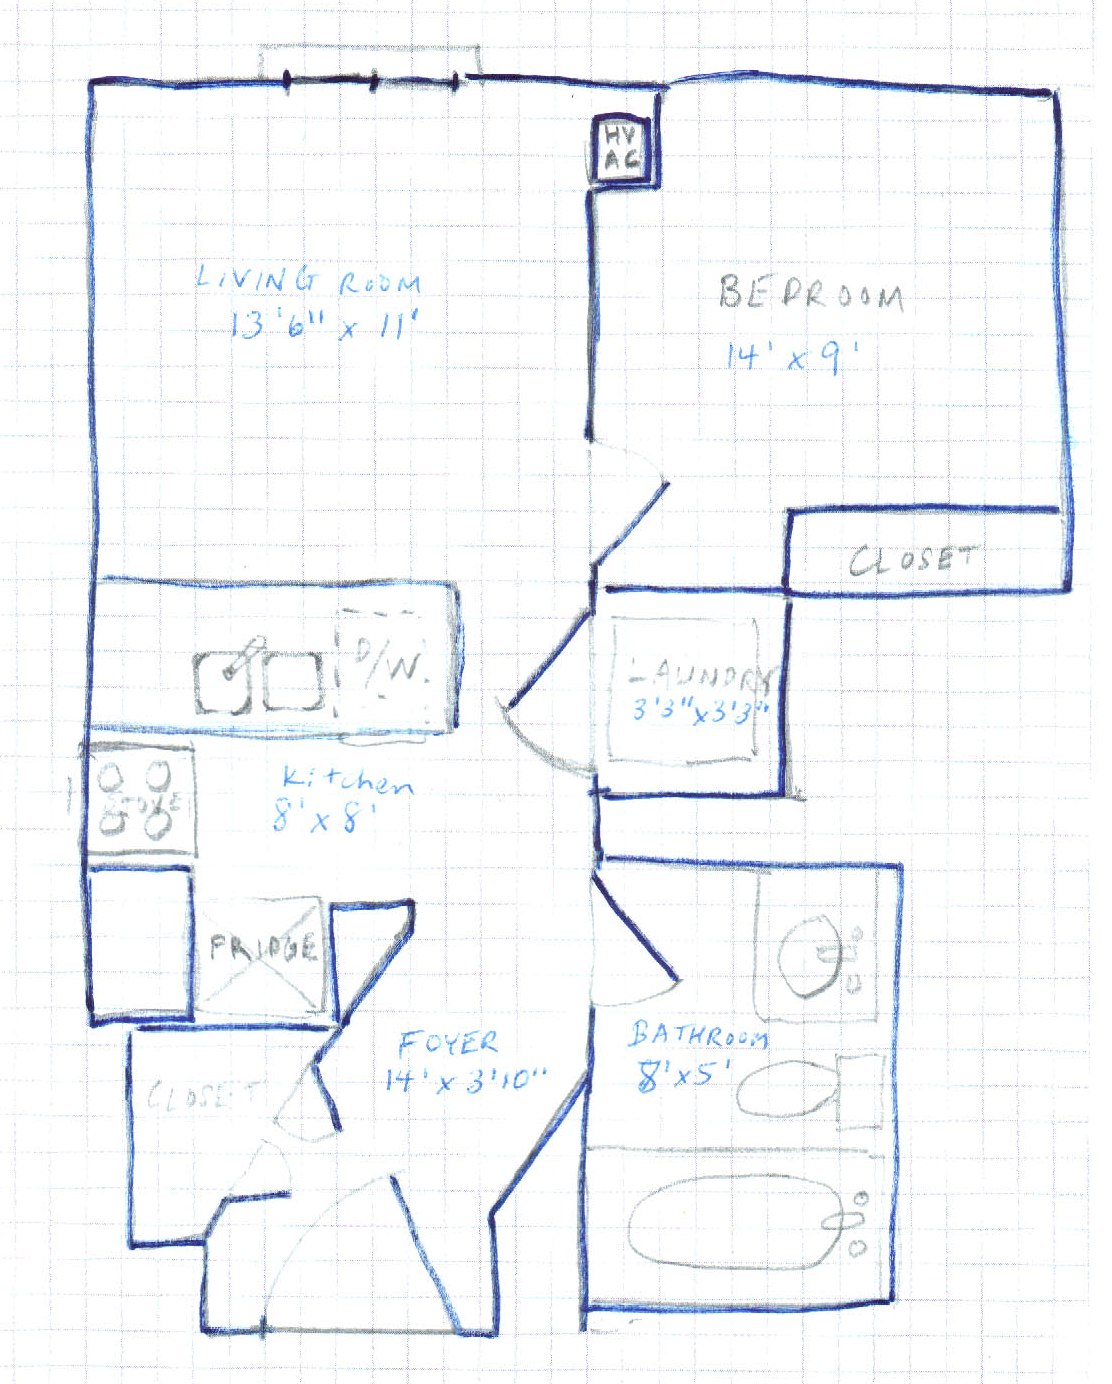 HV
AC
LIVING ROOM
13'6" x 11'
BEDROOM
14' x 9'
CLOSET
D/W.
LAUNDRY
3'3" x 3'3"
Kitchen
8' x 8'
STOVE
FRIDGE
FOYER
14' x 3'10"
BATHROOM
8' x 5'
CLOSET